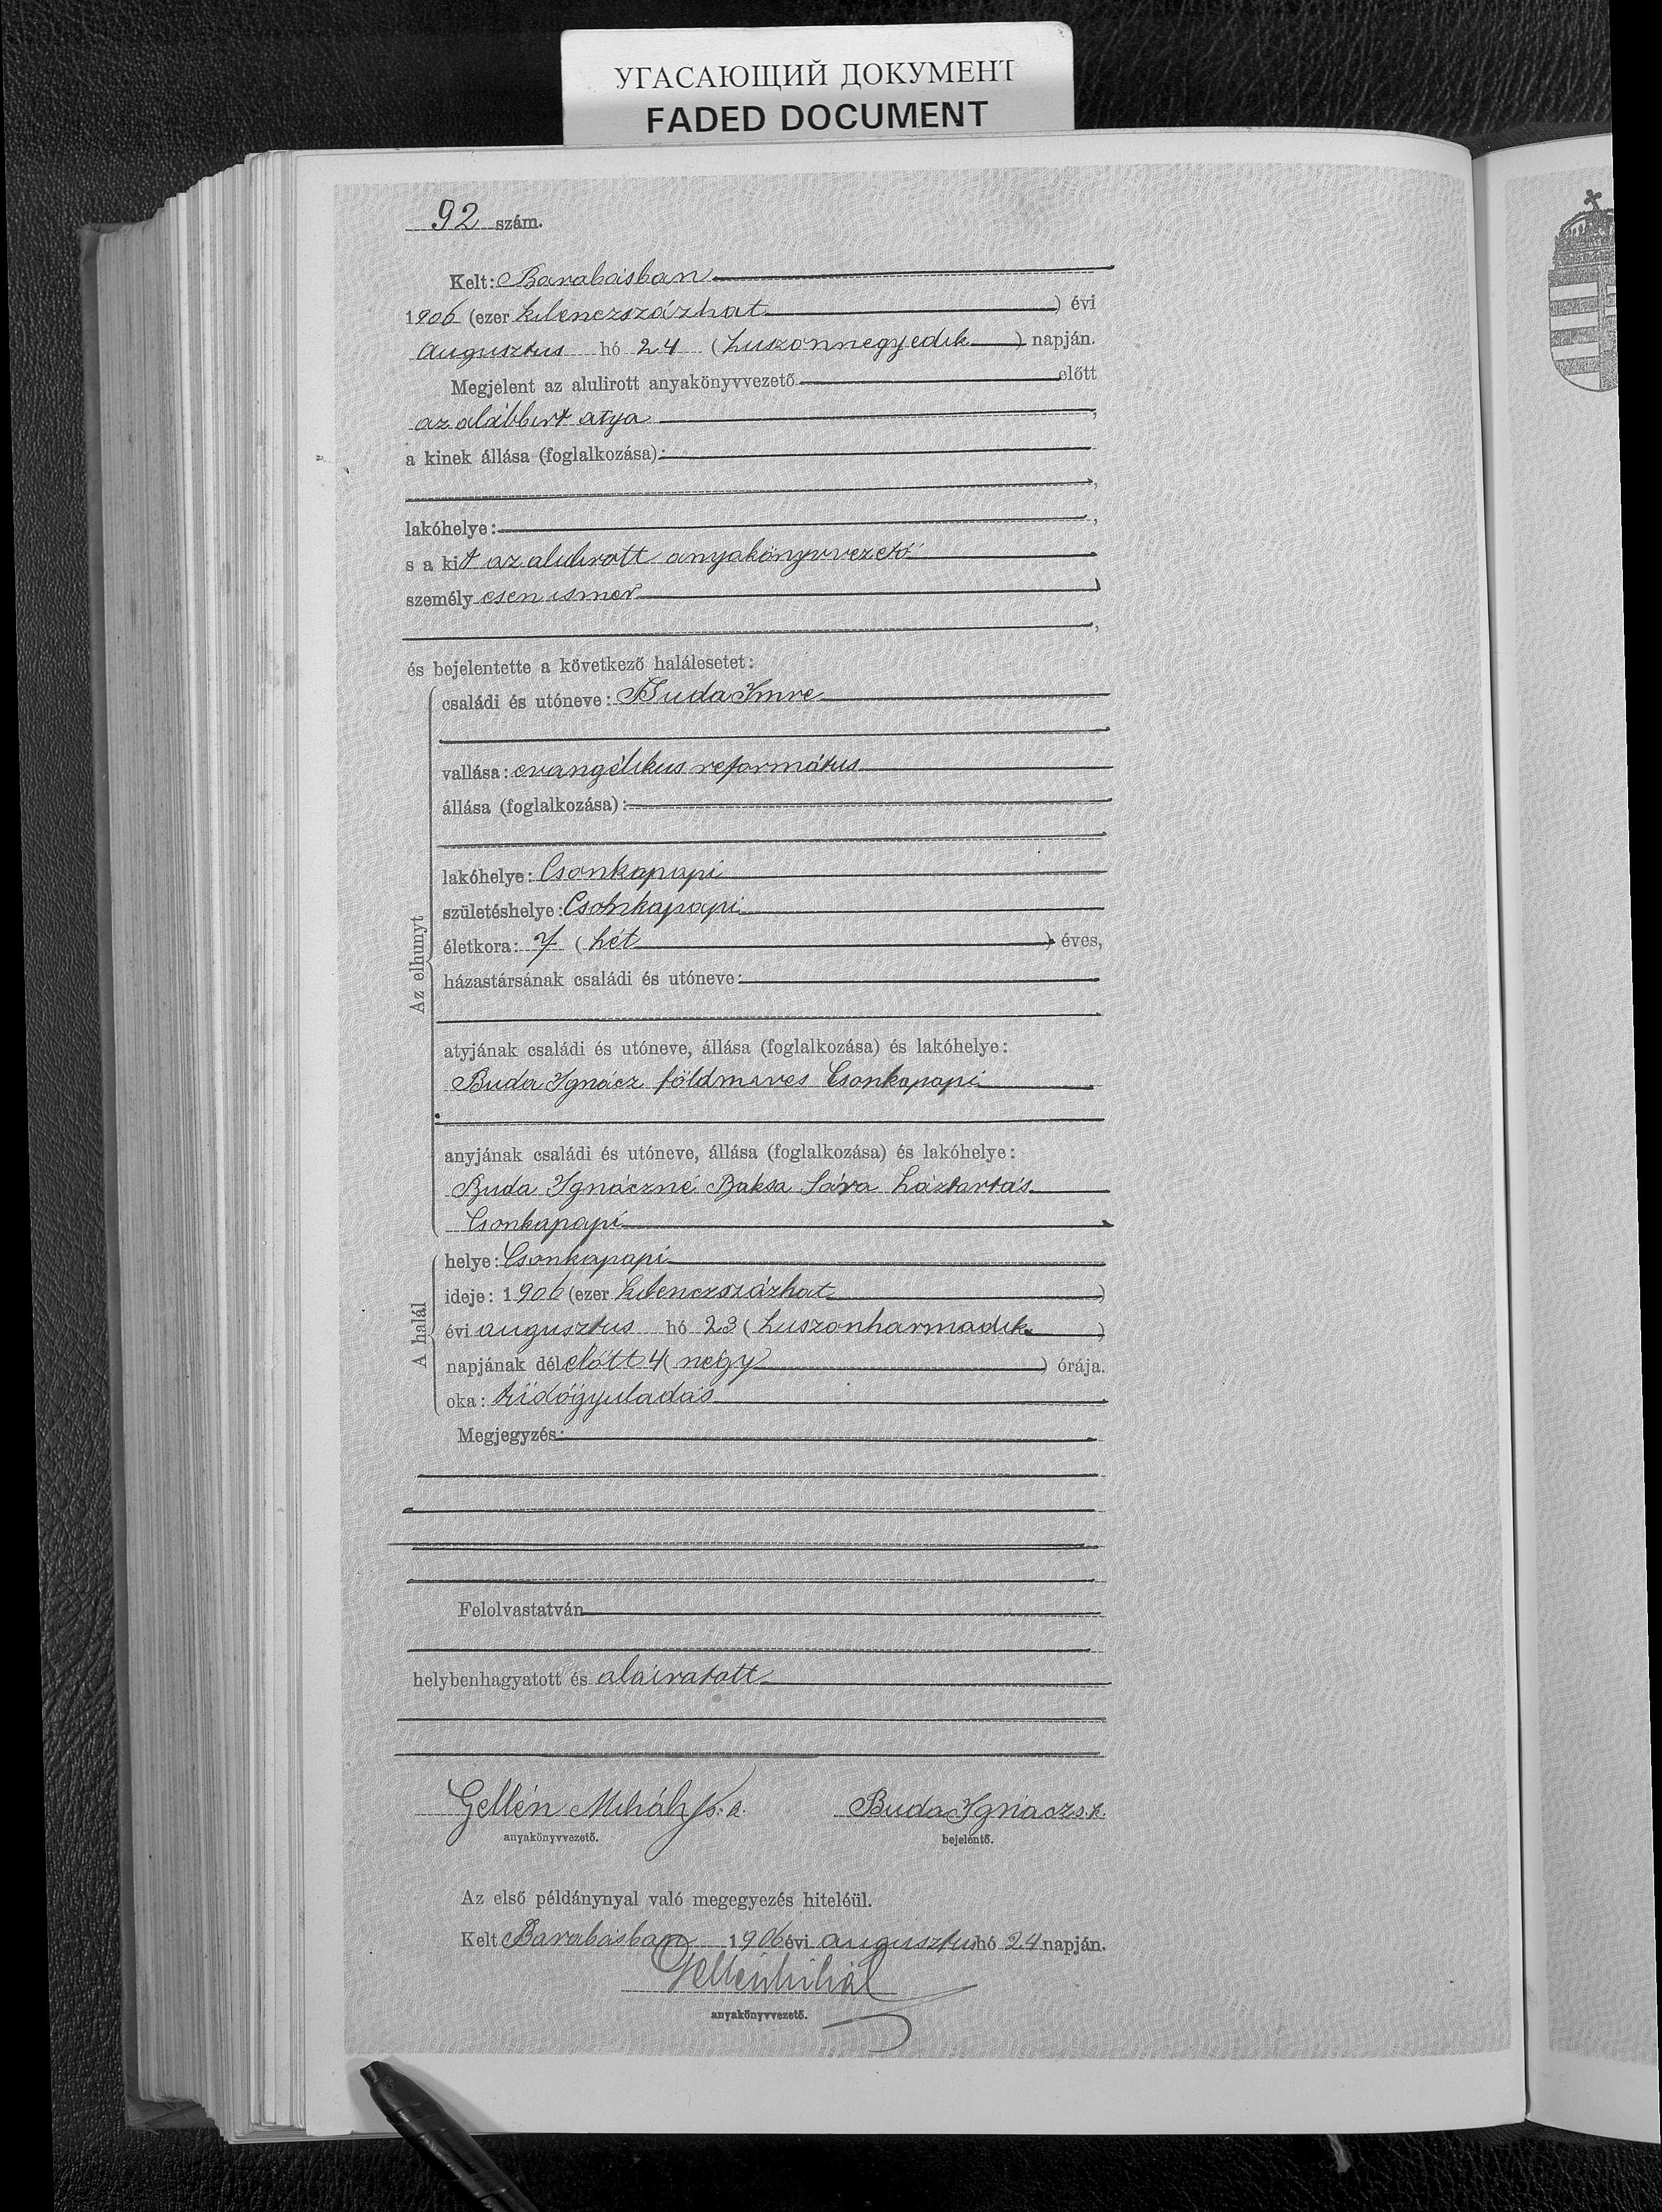 УГАСАЮЩИЙ ДОКУМЕНТ
FADED DOCUMENT
92 szám.
Kelt: Barabásban
1906 (ezer kilenczszázhat) évi
Augusztus hó 24 (huszonnegyedik) napján.
Megjelent az alulirott anyakönyvvezető előtt
az alábbirt atya,
a kinek állása (foglalkozása):
,
lakóhelye: ,
s a kit az alulirott anyakönyvvezető
személyesen ismer
,
és bejelentette a következő halálesetet:
Az elhunyt
családi és utóneve: Buda Imre
vallása: evangélikus református
állása (foglalkozása):
lakóhelye: Csonkapapi
születéshelye: Csonkapapi
életkora: 7 (hét) éves,
házastársának családi és utóneve:
atyjának családi és utóneve, állása (foglalkozása) és lakóhelye:
Buda Ignácz földmives Csonkapapi
anyjának családi és utóneve, állása (foglalkozása) és lakóhelye:
Buda Ignáczné Baksa Sára háztartás
Csonkapapi
A halál
helye: Csonkapapi
ideje: 1906 (ezer kilenczszázhat)
évi augusztus hó 23 (huszonharmadik)
napjának délelőtt 4 (négy) órája.
oka: tüdőgyuladás
Megjegyzés:
Felolvastatván
helybenhagyatott és aláiratott
Gellén Mihály s. k. Buda Ignácz s. k.
anyakönyvvezető. bejelentő.
Az első példánynyal való megegyezés hiteléül.
Kelt Barabásban 1906 évi augusztus hó 24 napján.
Gellén Mihál
anyakönyvvezető.